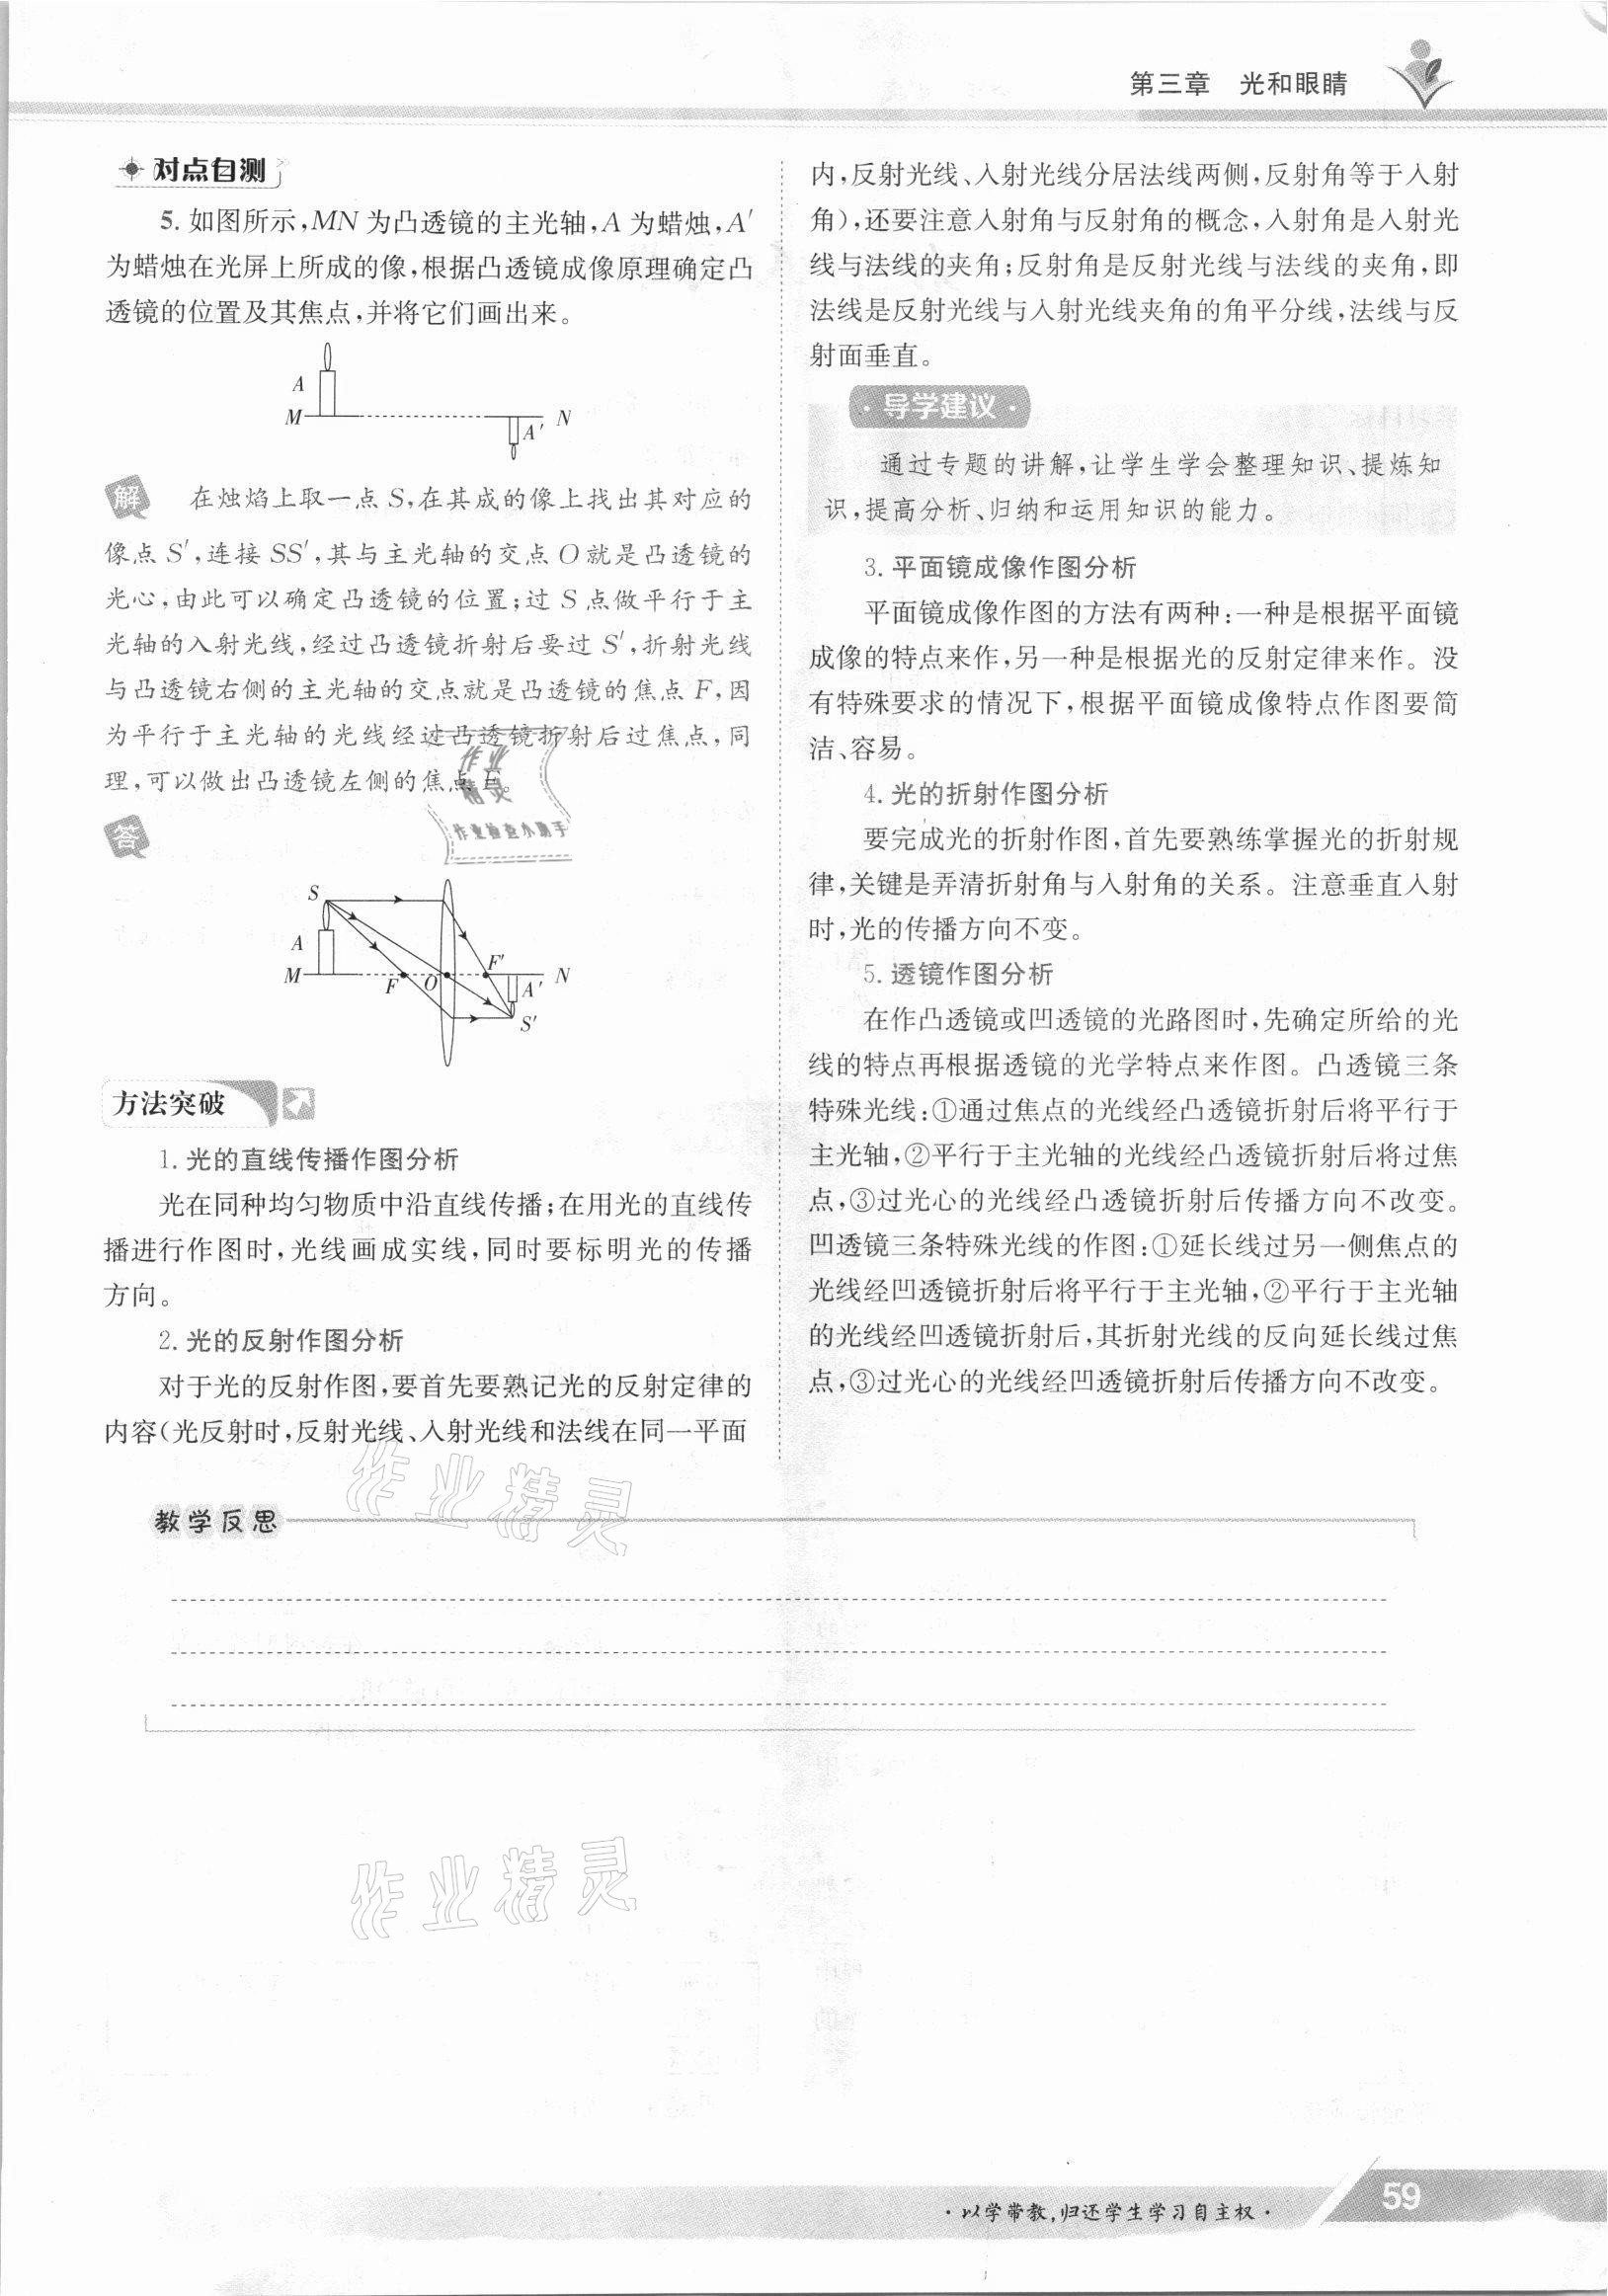 第三章 光和眼睛
对点自测
5. 如图所示,MN 为凸透镜的主光轴,A 为蜡烛,A′
为蜡烛在光屏上所成的像,根据凸透镜成像原理确定凸
透镜的位置及其焦点,并将它们画出来。
A
M
N
A′
解 在烛焰上取一点 S,在其成的像上找出其对应的
像点 S′,连接 SS′,其与主光轴的交点 O 就是凸透镜的
光心,由此可以确定凸透镜的位置;过 S 点做平行于主
光轴的入射光线,经过凸透镜折射后要过 S′,折射光线
与凸透镜右侧的主光轴的交点就是凸透镜的焦点 F,因
为平行于主光轴的光线经过凸透镜折射后过焦点,同
理,可以做出凸透镜左侧的焦点 F。
作业
精灵
作业检查小助手
答
S
A
M
F
O
F′
N
A′
S′
方法突破
1. 光的直线传播作图分析
光在同种均匀物质中沿直线传播;在用光的直线传
播进行作图时,光线画成实线,同时要标明光的传播
方向。
2. 光的反射作图分析
对于光的反射作图,要首先要熟记光的反射定律的
内容(光反射时,反射光线、入射光线和法线在同一平面
内,反射光线、入射光线分居法线两侧,反射角等于入射
角),还要注意入射角与反射角的概念,入射角是入射光
线与法线的夹角;反射角是反射光线与法线的夹角,即
法线是反射光线与入射光线夹角的角平分线,法线与反
射面垂直。
·导学建议·
通过专题的讲解,让学生学会整理知识、提炼知
识,提高分析、归纳和运用知识的能力。
3. 平面镜成像作图分析
平面镜成像作图的方法有两种:一种是根据平面镜
成像的特点来作,另一种是根据光的反射定律来作。没
有特殊要求的情况下,根据平面镜成像特点作图要简
洁、容易。
4. 光的折射作图分析
要完成光的折射作图,首先要熟练掌握光的折射规
律,关键是弄清折射角与入射角的关系。注意垂直入射
时,光的传播方向不变。
5. 透镜作图分析
在作凸透镜或凹透镜的光路图时,先确定所给的光
线的特点再根据透镜的光学特点来作图。凸透镜三条
特殊光线:①通过焦点的光线经凸透镜折射后将平行于
主光轴,②平行于主光轴的光线经凸透镜折射后将过焦
点,③过光心的光线经凸透镜折射后传播方向不改变。
凹透镜三条特殊光线的作图:①延长线过另一侧焦点的
光线经凹透镜折射后将平行于主光轴,②平行于主光轴
的光线经凹透镜折射后,其折射光线的反向延长线过焦
点,③过光心的光线经凹透镜折射后传播方向不改变。
作业精灵
教学反思
作业精灵
·以学带教,归还学生学习自主权·
59